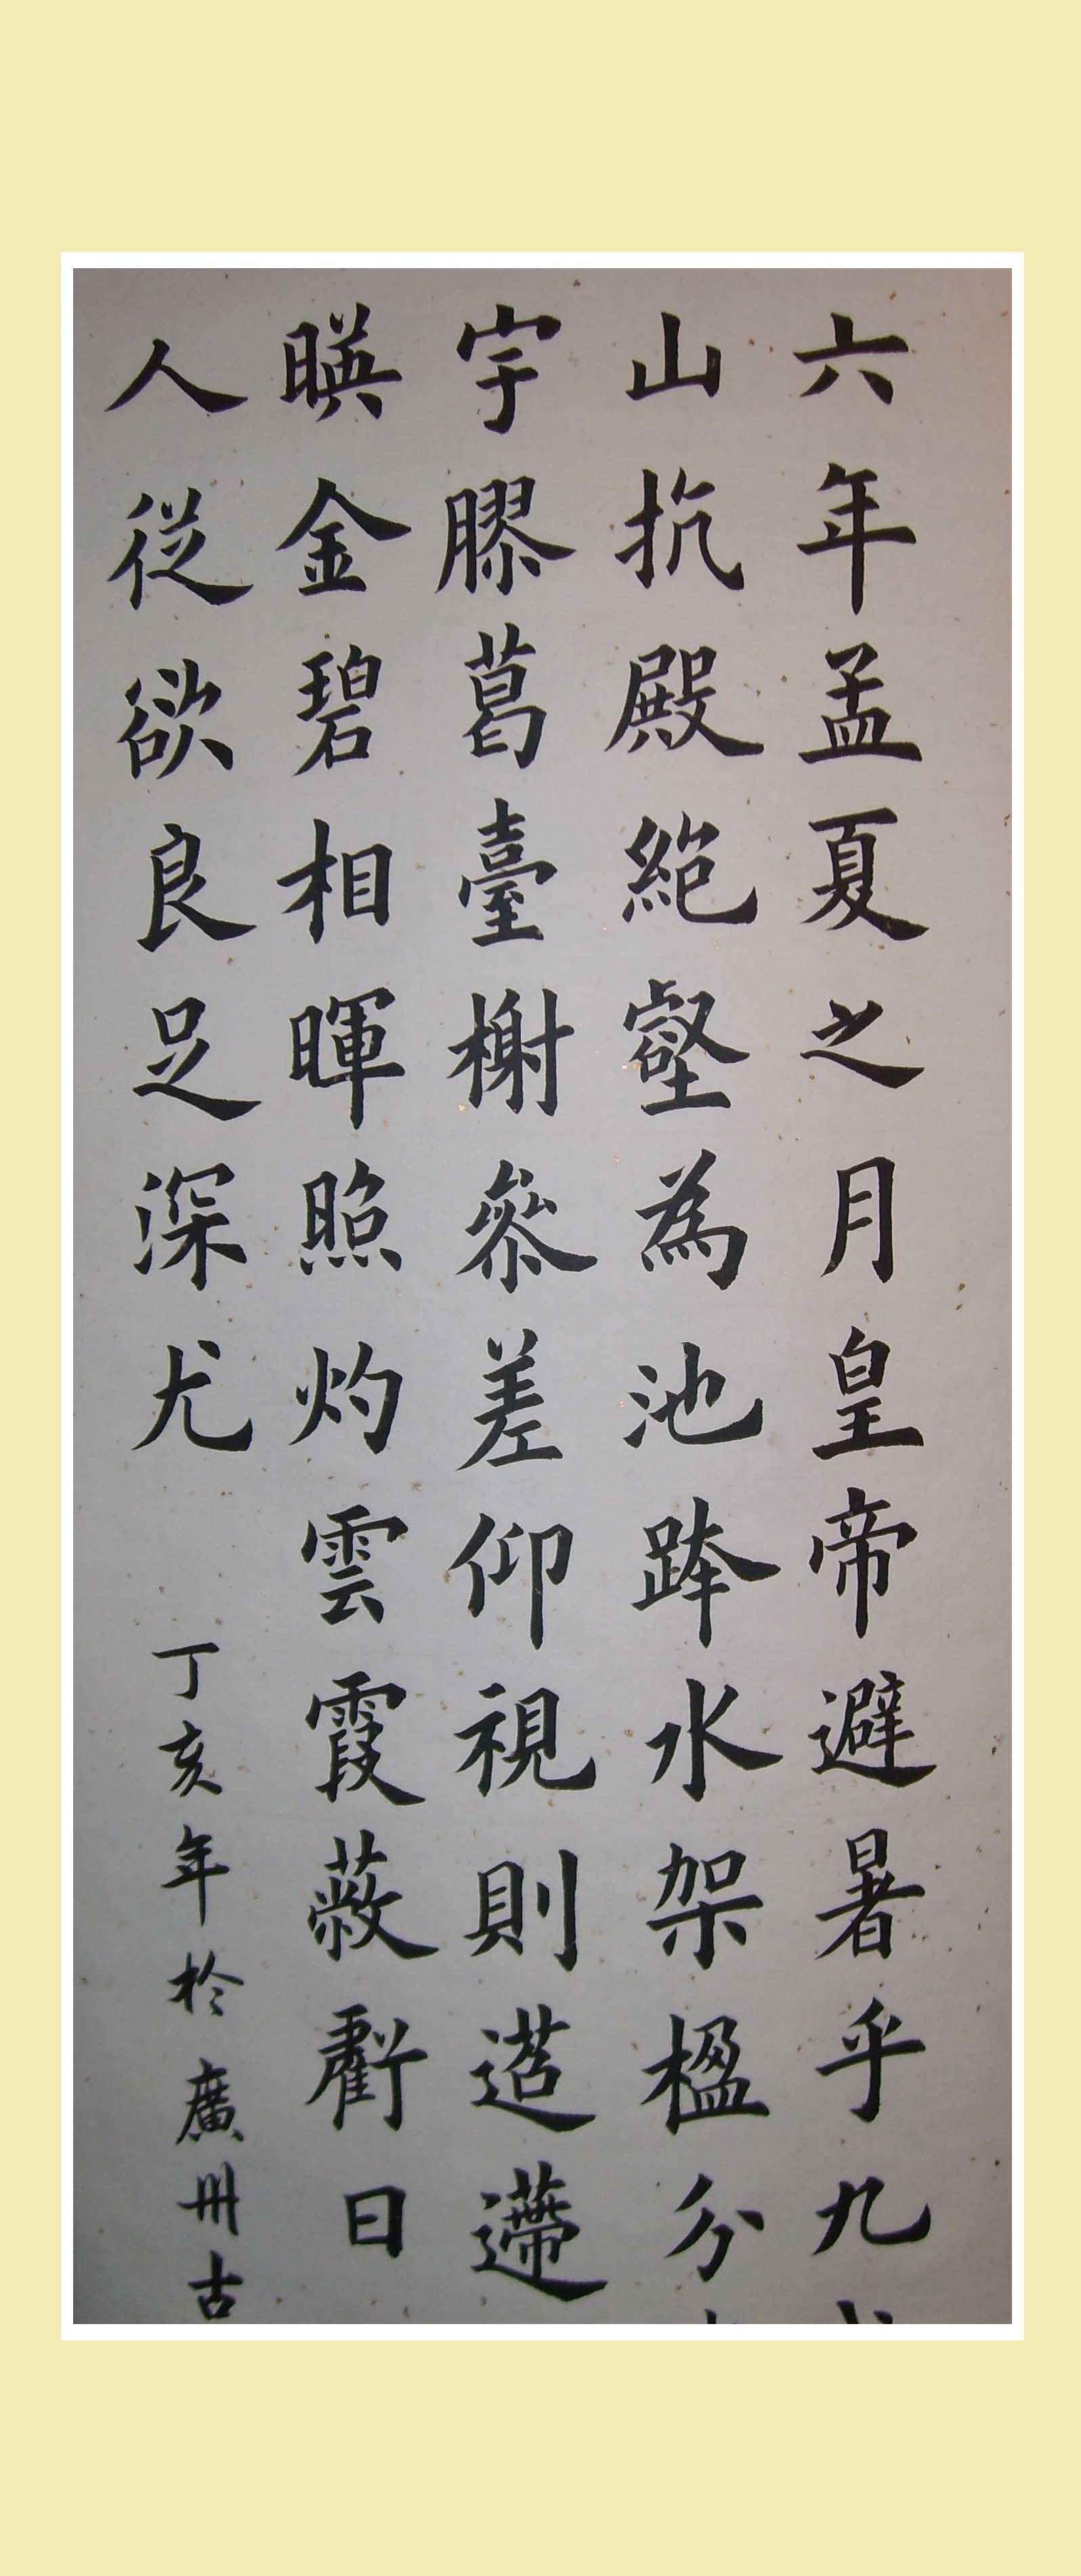 六年孟夏之月皇帝避暑乎九
山抗殿絶壑為池跨水架楹分
宇膠葛臺榭叅差仰視則迢遰
暎金碧相暉照灼雲霞蔽虧日
人從欲良足深尤
丁亥年於廣州古